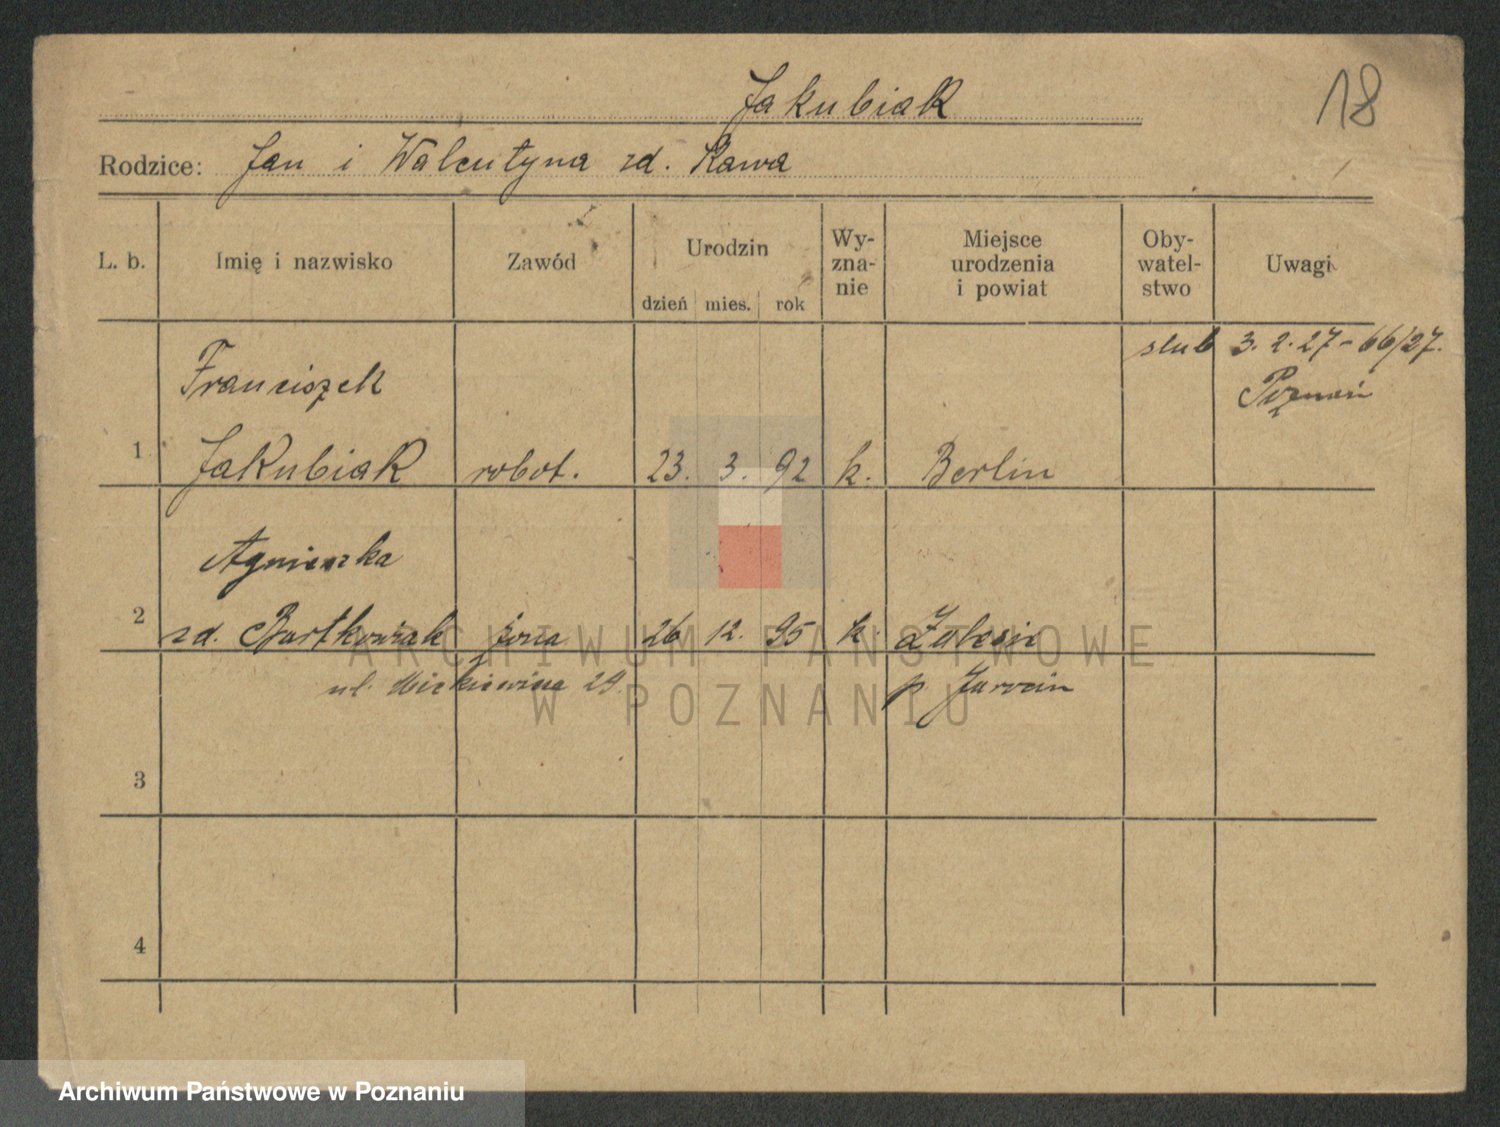 Jakubiak
18
Rodzice: Jan i Walentyna zd. Kawa
L. b.
Imię i nazwisko
Zawód
Urodzin
dzień mies. rok
Wy-
zna-
nie
Miejsce
urodzenia
i powiat
Oby-
watel-
stwo
Uwagi
ślub 3.2.27 - 66/27.
Poznań
Franciszek
1 Jakubiak robot. 23. 3. 92 k. Berlin
Agnieszka
2 zd. Bartkowiak żona 26 12. 95 k. Zalesie
ul. Mickiewicza 29.
p Jarocin
3
4
ARCHIWUM PAŃSTWOWE
W POZNANIU
Archiwum Państwowe w Poznaniu